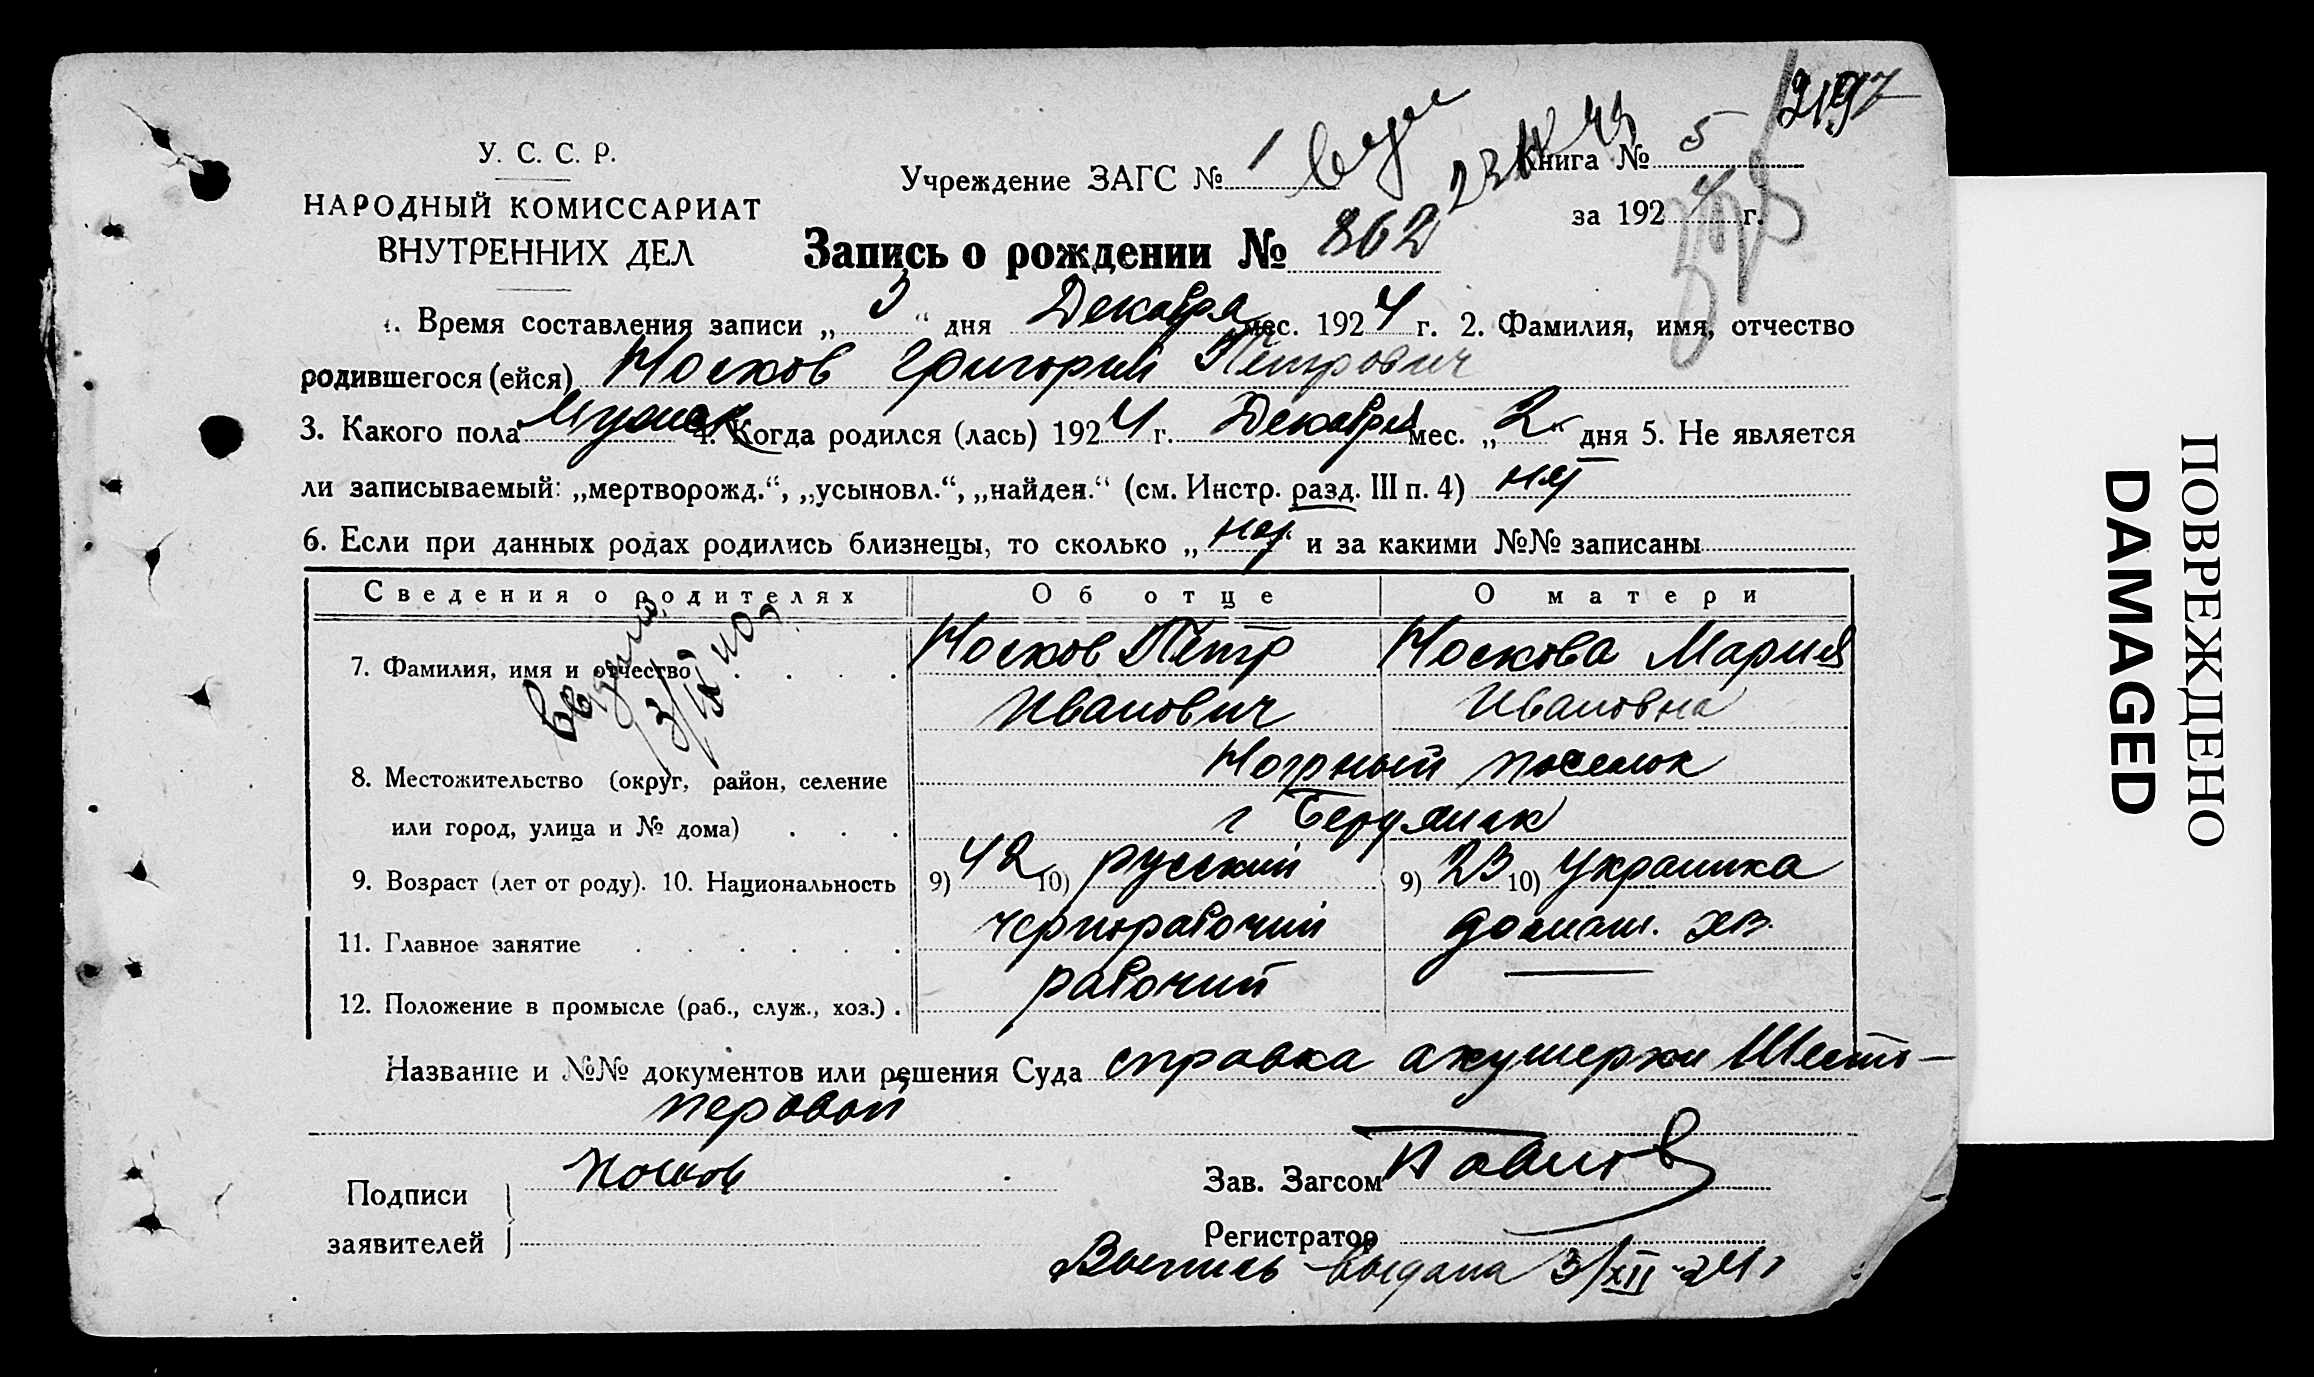 2197
У. С. С. Р.
НАРОДНЫЙ КОМИССАРИАТ
ВНУТРЕННИХ ДЕЛ
Учреждение ЗАГС № 1
Книга № 5
за 1924 г.
Запись о рождении № 862
1. Время составления записи „ 3 “ дня Декабря мес. 1924 г. 2. Фамилия, имя, отчество
родившегося (ейся) Носков Григорий Петрович
3. Какого пола Мужск 4. Когда родился (лась) 1924 г. Декабря мес. „ 2 “ дня 5. Не является
ли записываемый: „мертворожд.“, „усыновл.“, „найден.“ (см. Инстр. разд. III п. 4) нет
6. Если при данных родах родились близнецы, то сколько „ нет и за какими №№ записаны
Сведения о родителях Об отце О матери
7. Фамилия, имя и отчество Носков Петр Носкова Мария
Иванович Ивановна
8. Местожительство (округ, район, селение Нагрный поселок
или город, улица и № дома) г Бердянск
9. Возраст (лет от роду). 10. Национальность 9) 42 10) русский 9) 23 10) Украинка
11. Главное занятие чернорабочий домаш. хоз.
12. Положение в промысле (раб., служ., хоз.) рабочий —
Название и №№ документов или решения Суда справка акушерки Шесто-
перовой
Подписи заявителей Носков
Зав. Загсом
Регистратор
Выпись выдана 3/XII-24 г
ПОВРЕЖДЕНО
DAMAGED